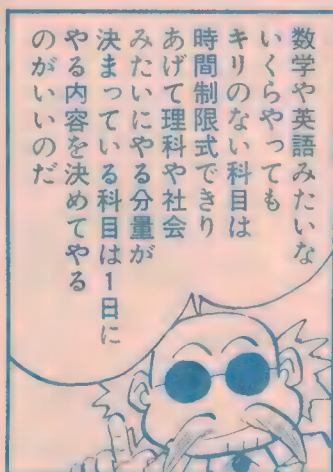 数学や英語みたいな
いくらやっても
キリのない科目は
時間制限式できり
あげて理科や社会
みたいにやる分量が
決まっている科目は1日に
やる内容を決めてやる
のがいいのだ